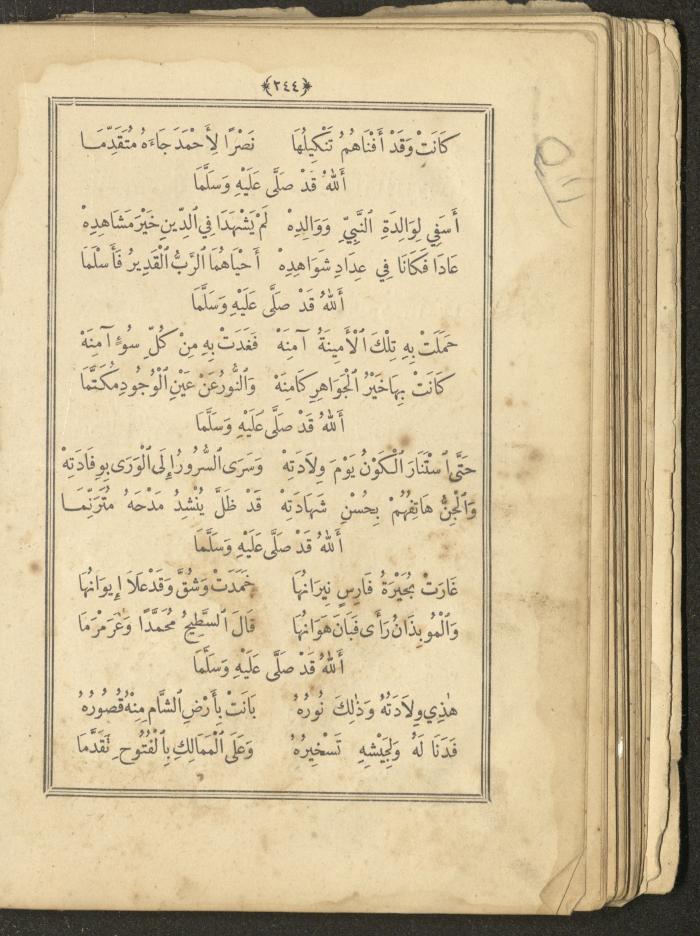 ﴿٢٤٤﴾
كَانَتْ وَقَدْ أَفْنَاهُمُ تَنْكِيلُهَا نَصْرًا لِأَحْمَدَ جَاءَهُ مُتَقَدِّمَـا
أَللهُ قَدْ صَلَّى عَلَيْهِ وَسَلَّمَا
أَسَفِي لِوَالِدَةِ النَّبِيِّ وَوَالِدِهْ لَمْ يَشْهَدَا فِي الدِّينِ خَيْرَ مَشَاهِدِهْ
عَادَا فَكَانَا فِي عِدَادِ شَوَاهِدِهْ أَحْيَاهُمَا الرَّبُّ الْقَدِيرُ فَأَسْلَمَا
أَللهُ قَدْ صَلَّى عَلَيْهِ وَسَلَّمَا
حَمَلَتْ بِهِ تِلْكَ الْأَمِينَةُ آمِنَهْ فَغَدَتْ بِهِ مِنْ كُلِّ سُوءٍ آمِنَهْ
كَانَتْ بِهَا خَيْرُ الْجَوَاهِرِ كَامِنَهْ وَالنُّورُ عَنْ عَيْنِ الْوُجُودِ مُكَتَّمَا
أَللهُ قَدْ صَلَّى عَلَيْهِ وَسَلَّمَا
حَتَّى اسْتَنَارَ الْكَوْنُ يَوْمَ وِلَادَتِهْ وَسَرَى السُّرُورُ إِلَى الْوَرَى بِوِفَادَتِهْ
وَالْجِنُّ هَاتِفُهُمْ بِحُسْنِ شَهَادَتِهْ قَدْ ظَلَّ يُنْشِدُ مَدْحَهُ مُتَرَنِّمَـا
أَللهُ قَدْ صَلَّى عَلَيْهِ وَسَلَّمَا
غَارَتْ بُحَيْرَةُ فَارِسٍ نِيرَانُهَا خَمَدَتْ وَشُقَّ وَقَدْ عَلَا إِيوَانُهَا
وَالْمُوبِذَانُ رَأَى فَبَانَ هَوَانُهَا قَالَ السَّطِيحُ مُحَمَّدًا وَعَرَمْرَمَا
أَللهُ قَدْ صَلَّى عَلَيْهِ وَسَلَّمَا
هٰذِي وِلَادَتُهُ وَذٰلِكَ نُورُهُ بَانَتْ بِأَرْضِ الشَّامِ مِنْهُ قُصُورُهُ
فَدَنَا لَهُ وَلِجَيْشِهِ تَسْخِيرُهُ وَعَلَى الْمَمَالِكِ بِالْفُتُوحِ تَقَدَّمَا